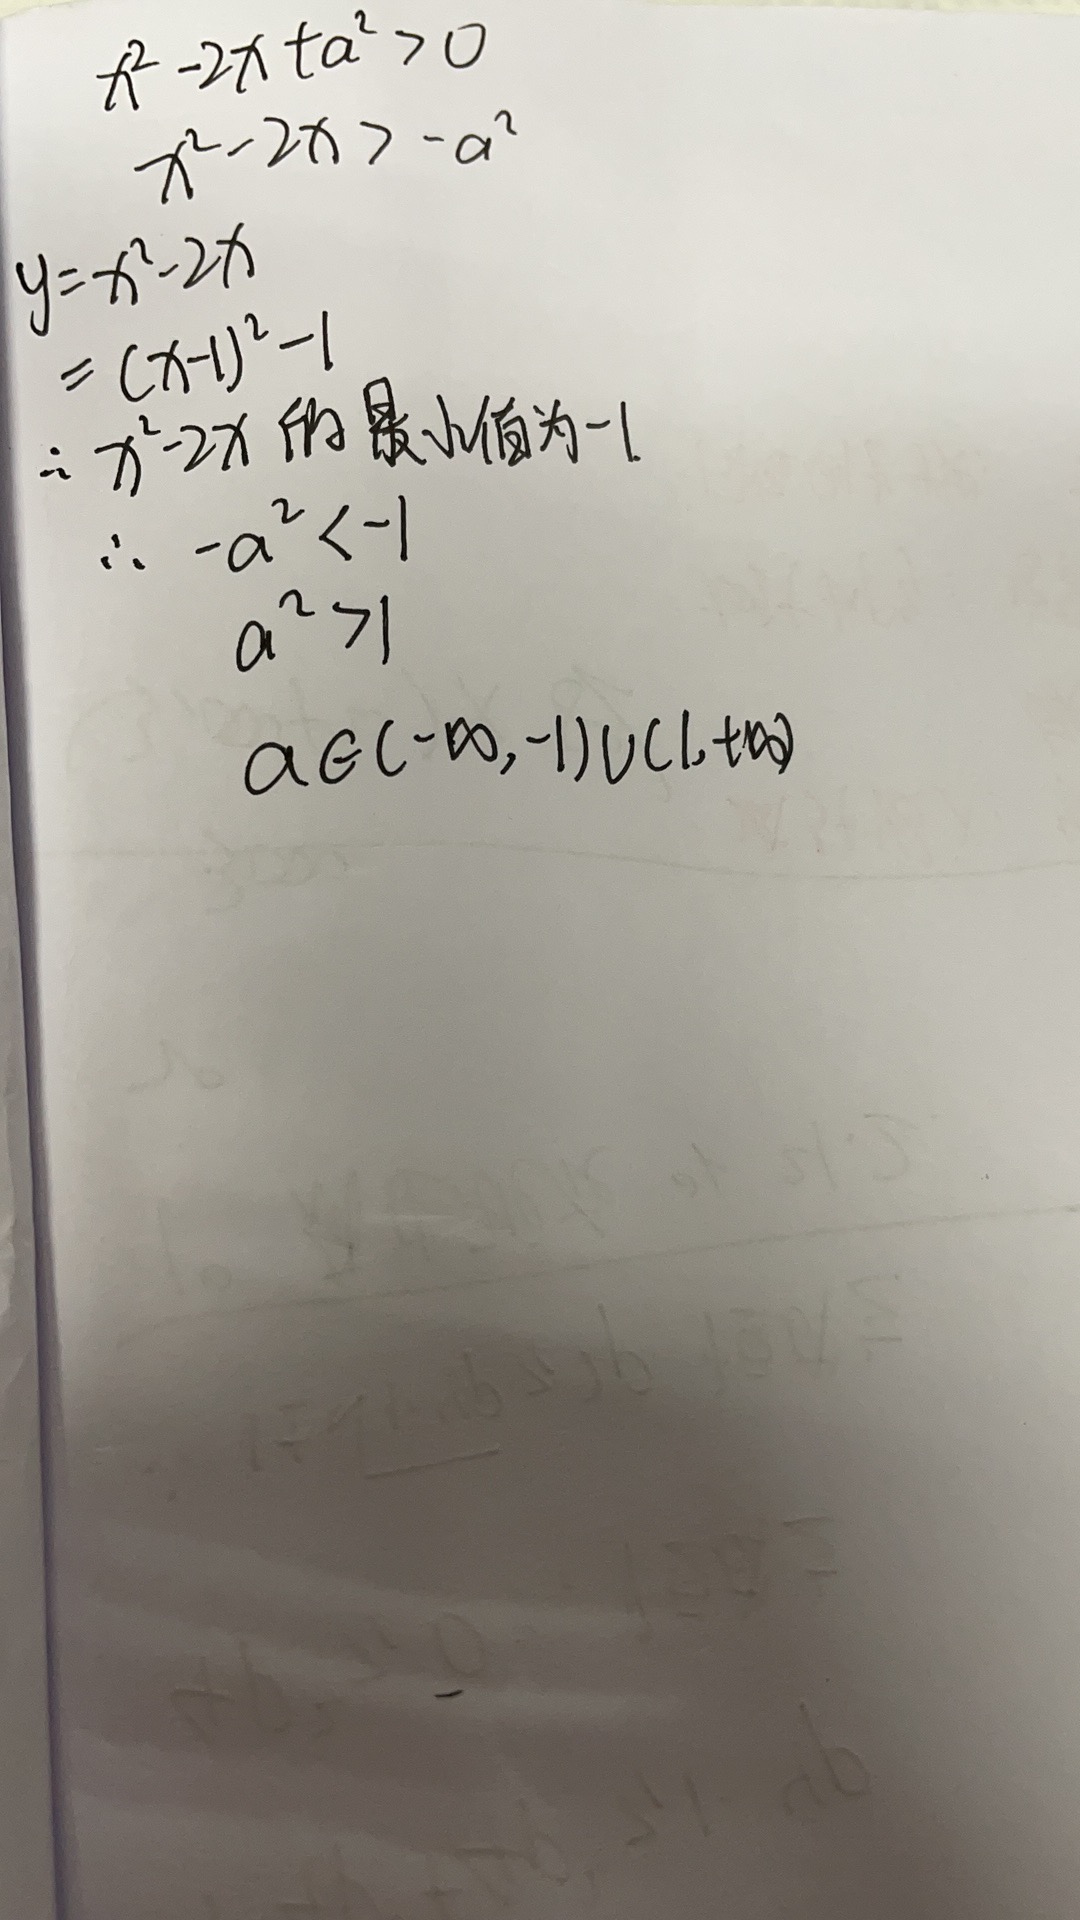 x²-2x+a²>0
x²-2x>-a²
y=x²-2x
=(x-1)²-1
∴x²-2x的最小值为-1
∴ -a²<-1
a²>1
a∈(-∞,-1)∪(1,+∞)